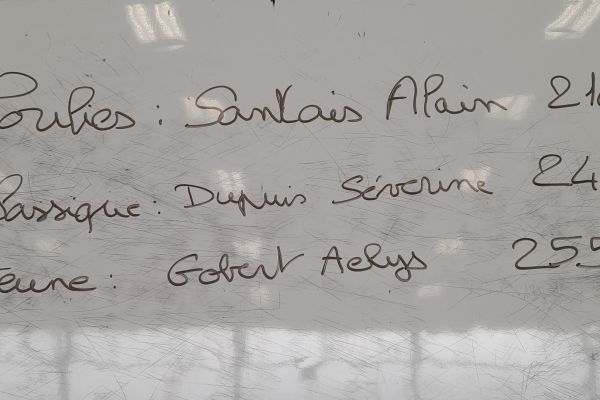 Poulies : Santais Alain 21
Classique : Dupuis Séverine 24
Jeune : Gobert Aelys 255